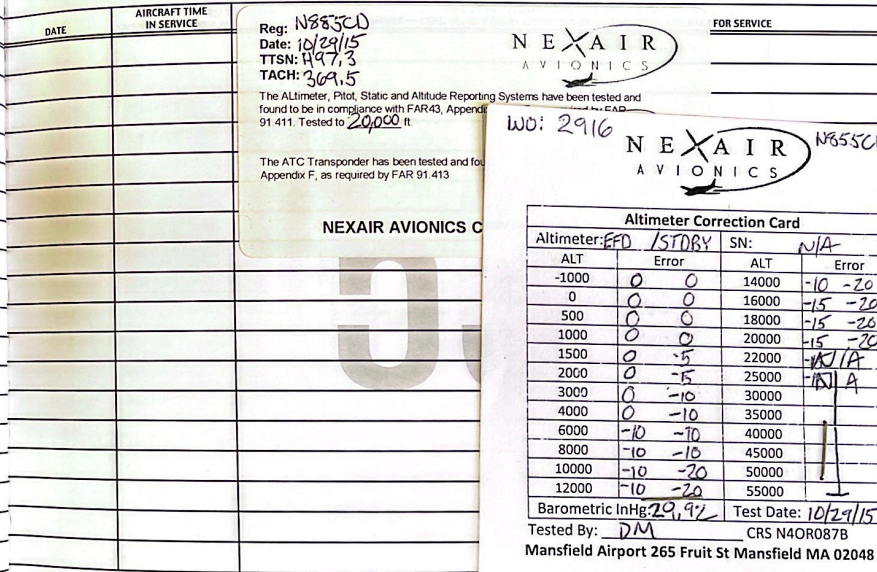 DATE
AIRCRAFT TIME
IN SERVICE
FOR SERVICE
Reg: N885CD
Date: 10/29/15
TTSN: 497.3
TACH: 369.5
NEXAIR
AVIONICS
The ALtimeter, Pitot, Static and Altitude Reporting Systems have been tested and
found to be in compliance with FAR43, Appendi
91.411. Tested to 20,000 ft.
The ATC Transponder has been tested and fou
Appendix F, as required by FAR 91.413
NEXAIR AVIONICS C
WO: 2916
NEXAIR
AVIONICS
N855C
Altimeter Correction Card
Altimeter: EFD / STDBY SN: N/A
ALT Error ALT Error
-1000 0 0 14000 -10 -20
0 0 0 16000 -15 -20
500 0 0 18000 -15 -20
1000 0 0 20000 -15 -20
1500 0 -5 22000 N/A
2000 0 -5 25000 N A
3000 0 -10 30000
4000 0 -10 35000
6000 -10 -10 40000
8000 -10 -10 45000
10000 -10 -20 50000
12000 -10 -20 55000
Barometric InHg: 29.92 Test Date: 10/29/15
Tested By: DM CRS N4OR087B
Mansfield Airport 265 Fruit St Mansfield MA 02048